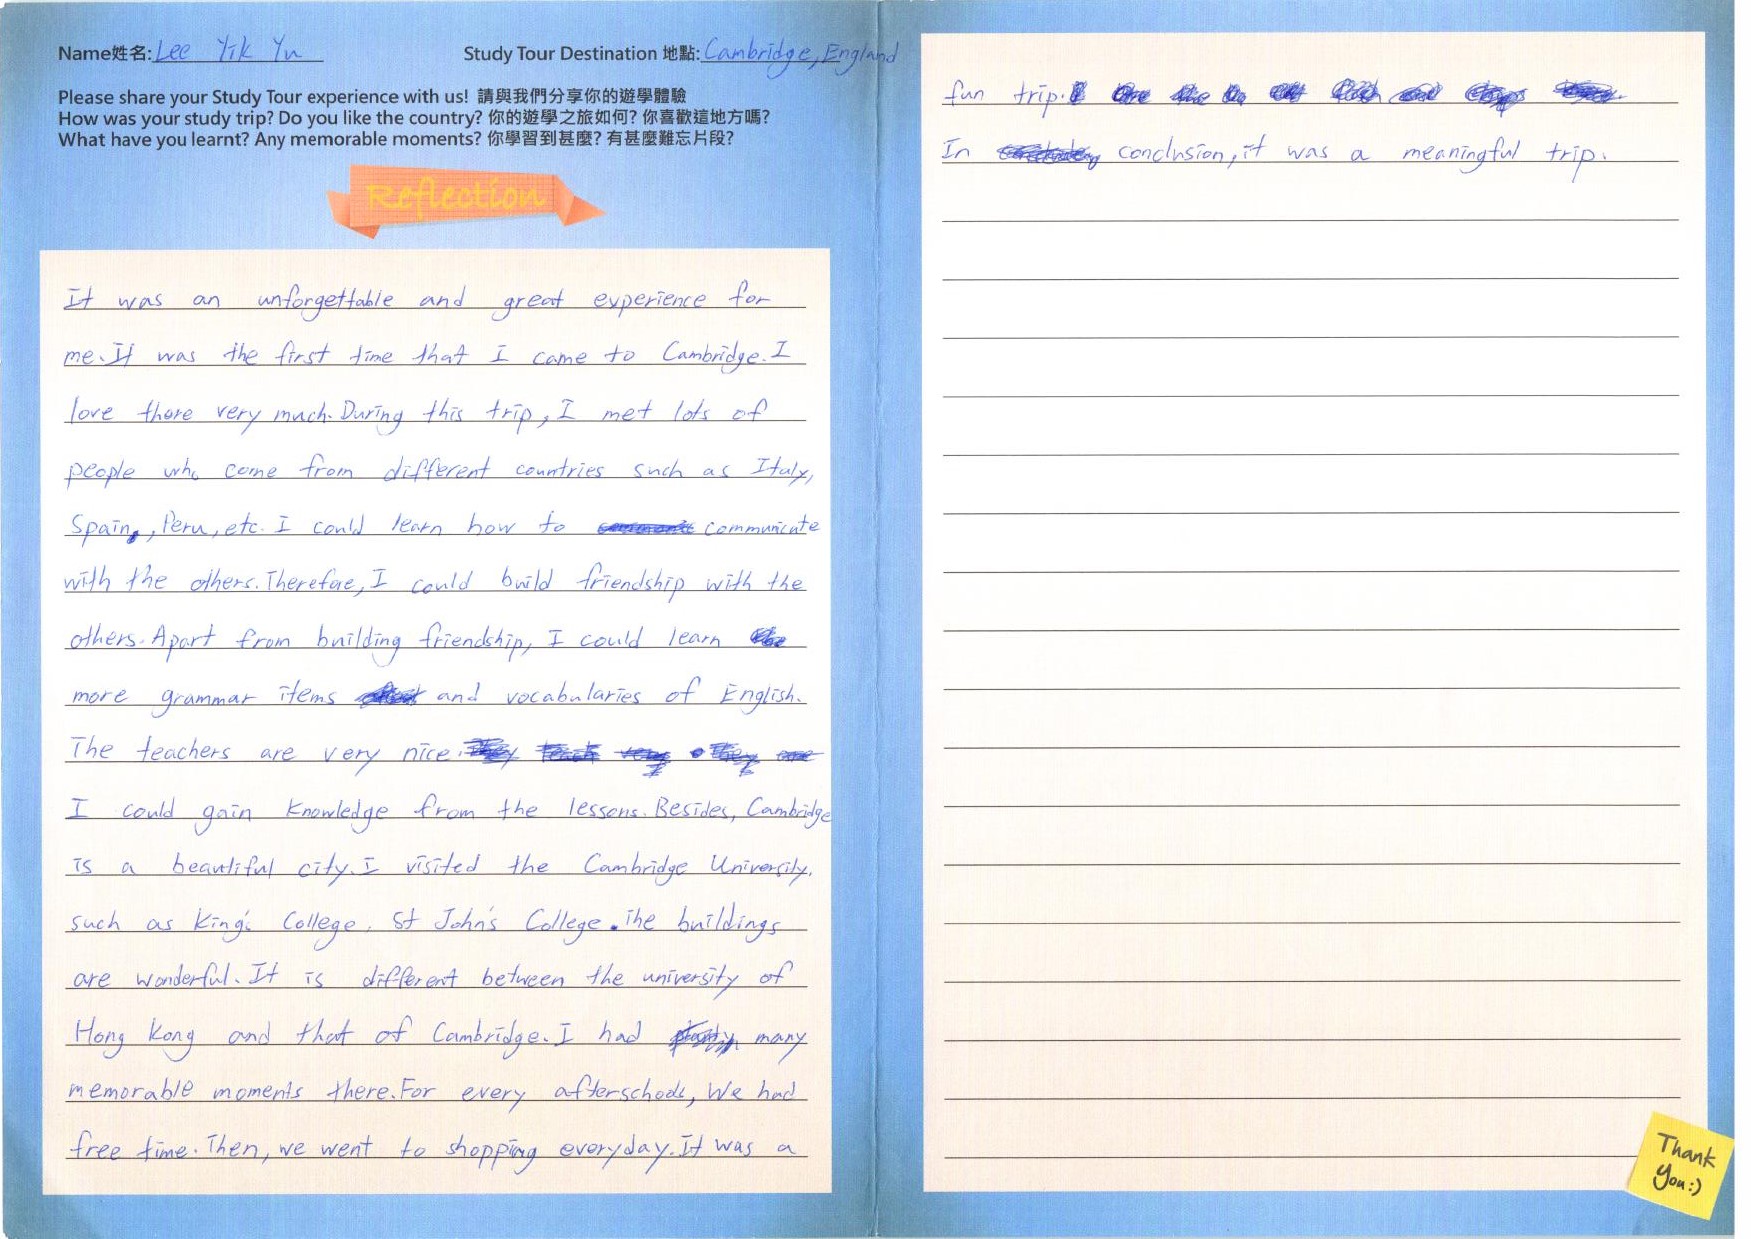 Name姓名: Lee Yik Yu
Study Tour Destination 地點: Cambridge, England
Please share your Study Tour experience with us! 請與我們分享你的遊學體驗
How was your study trip? Do you like the country? 你的遊學之旅如何? 你喜歡這地方嗎?
What have you learnt? Any memorable moments? 你學習到甚麼? 有甚麼難忘片段?
Reflection
It was an unforgettable and great experience for
me. It was the first time that I came to Cambridge. I
love there very much. During this trip, I met lots of
people who come from different countries such as Italy,
Spain, , Peru, etc. I could learn how to communicate
with the others. Therefore, I could build friendship with the
others. Apart from building friendship, I could learn
more grammar items and vocabularies of English.
The teachers are very nice.
I could gain knowledge from the lessons. Besides, Cambridge
is a beautiful city. I visited the Cambridge University,
such as King's College, St John's College. The buildings
are wonderful. It is different between the university of
Hong Kong and that of Cambridge. I had many
memorable moments there. For every afterschools, We had
free time. Then, we went to shopping everyday. It was a
fun trip.
In conclusion, it was a meaningful trip.
Thank
You:)